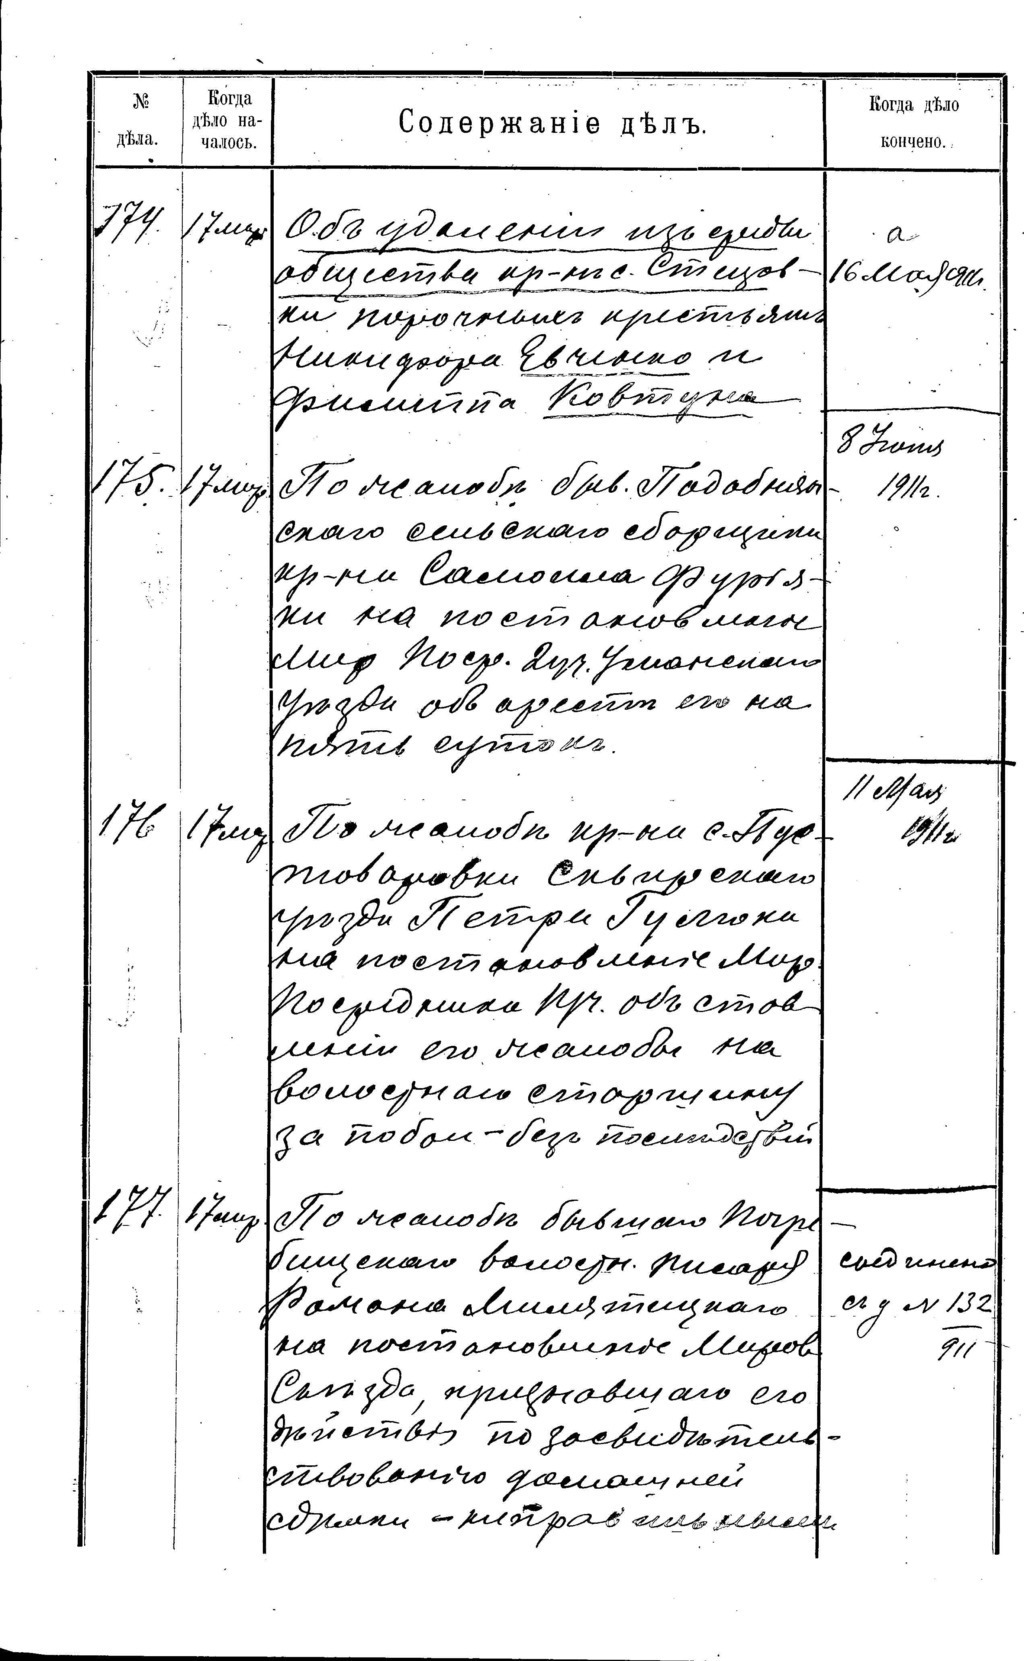 № дѣла.
Когда дѣло на-
чалось.
Содержаніе дѣлъ.
Когда дѣло
кончено.
174. 17 мар Объ удаленіи изъ среды
общества кр-нъ с. Стецов-
ки порочныхъ крестьянъ
Никифора Евченко и
Филиппа Ковтуна
а
16 Мая 911г.
175. 17 мар По жалобѣ быв. Подобнян-
скаго сельскаго сборщика
кр-на Самоила Фурся-
ки на постановленіе
Мир Поср. 2 уч. Уманскаго
уѣзда объ арестѣ его на
пять сутокъ.
8 Іюня
1911г.
176 17 мар По жалобѣ кр-на с. Пус-
товаровки Сквирскаго
уѣзда Петра Гузлюка
на постановленіе Мир.
Посредника объ остав
леніи его жалобы на
волостнаго старшину
за побои - безъ послѣдствій
11 Мая
1911г
177. 17 мар По жалобѣ бывшаго Погре-
бищскаго волостн. писаря
Романа Милятицкаго
на постановленіе Миров
Съѣзда, признавшаго его
дѣйствія по засвидѣтель-
ствованію домашней
сдѣлки - неправильными
соединено
съ д № 132
911